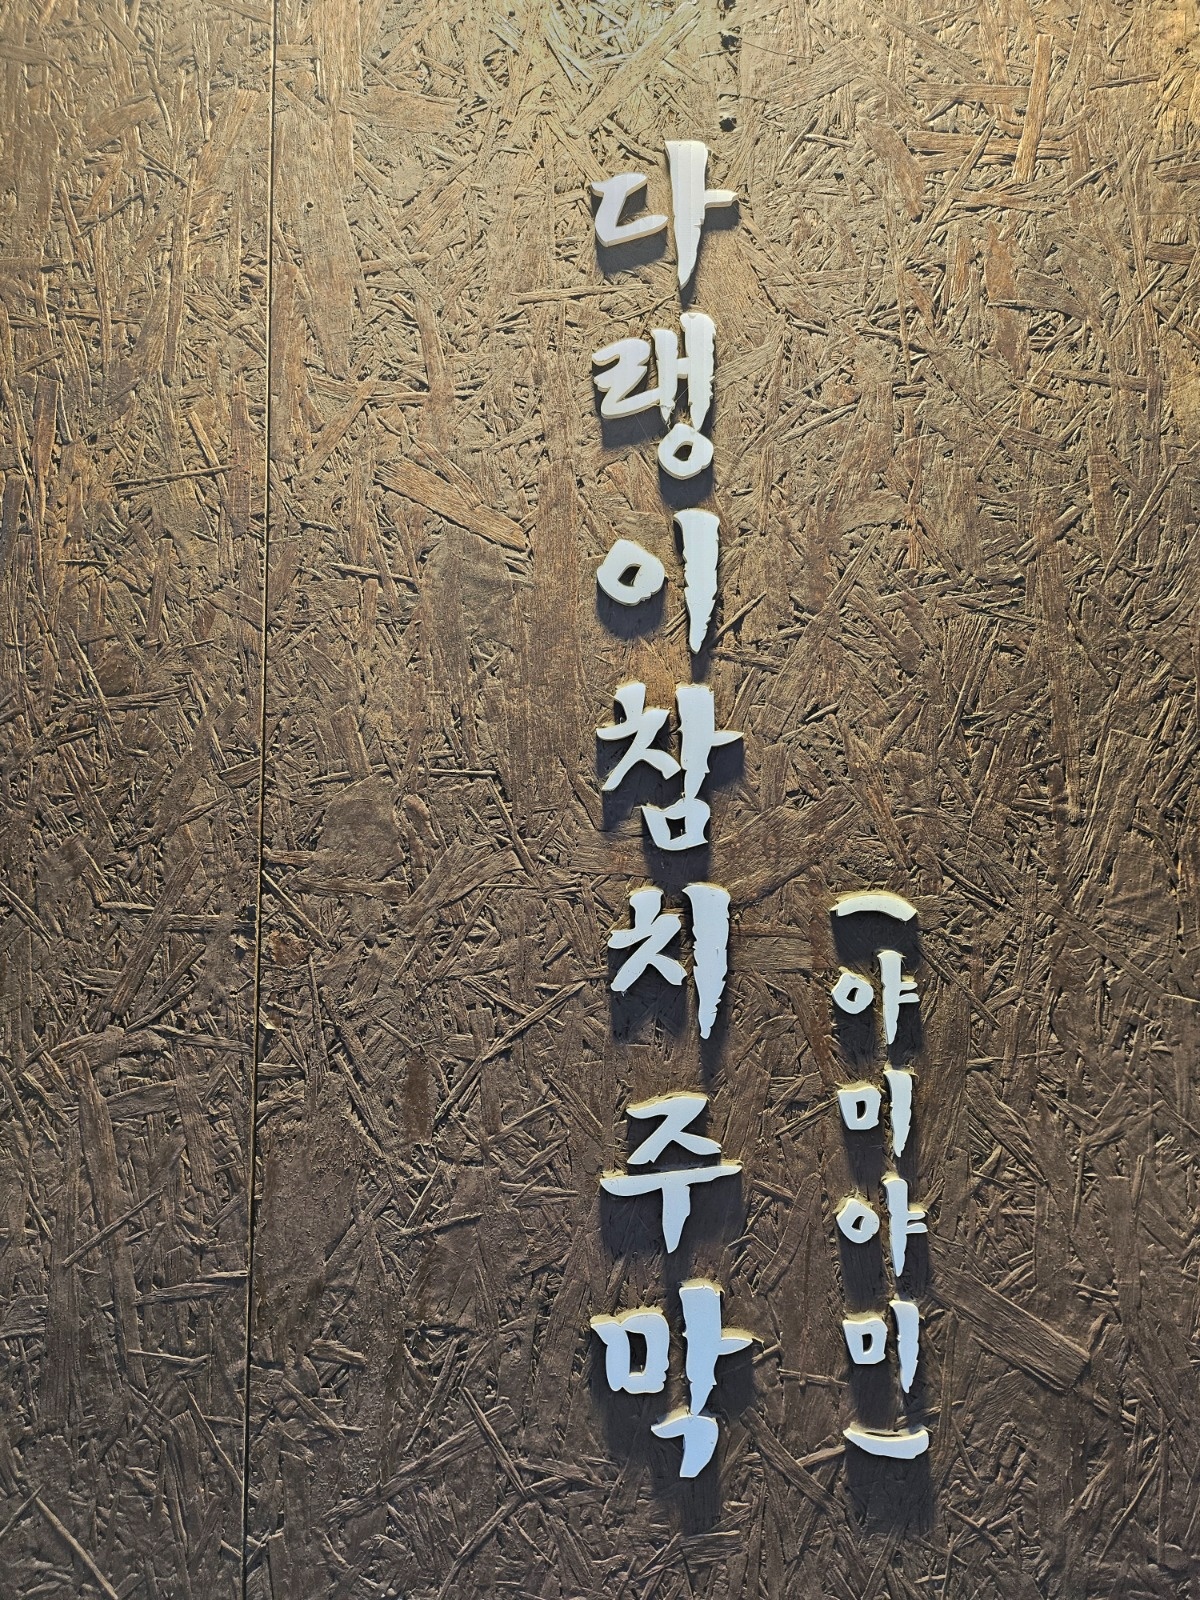 다랭이참치주막
(야미야미)